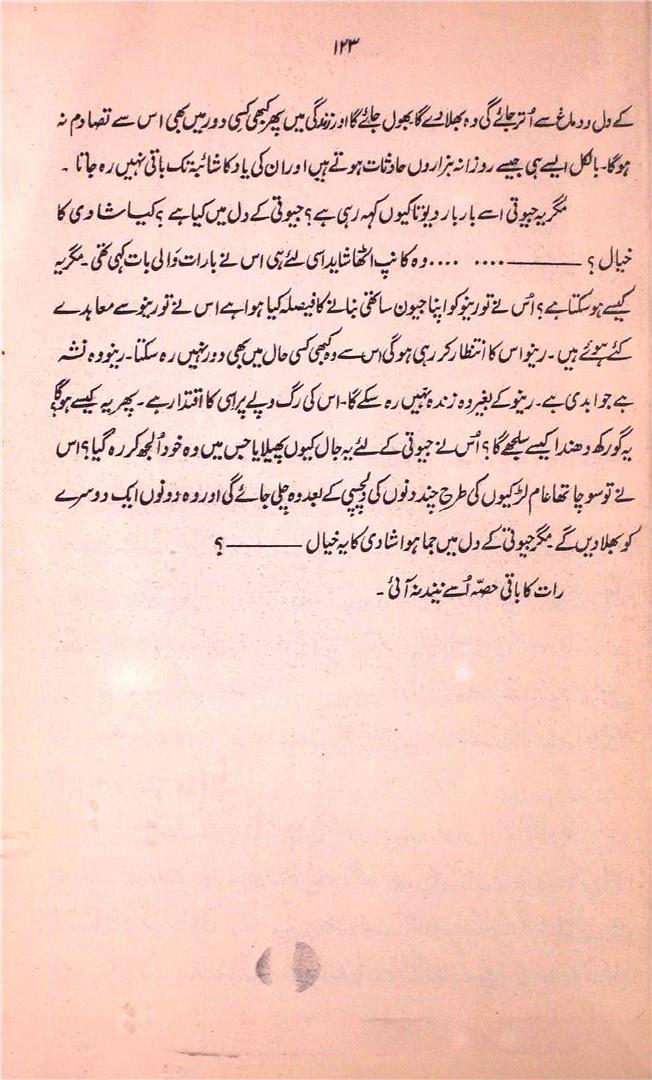 ۱۲۳
کے دل و دماغ سے اُتر جائے گی وہ بھلا دے گا بھول جائے گا اور زندگی میں پھر کبھی کسی دور میں بھی اس سے تصادم نہ
ہوگا۔ بالکل ایسے ہی جیسے روزانہ ہزاروں حادثات ہوتے ہیں اور ان کی یاد کا شائبہ تک باقی نہیں رہ جاتا ۔
مگر یہ جیوتی اسے بار بار دیوتا کیوں کہہ رہی ہے؟ جیوتی کے دل میں کیا ہے ؟ کیا شادی کا
خیال ؟ ——— .... .... وہ کانپ اٹھا شاید اسی لئے ہی اس نے بارات والی بات کہی تھی ۔ مگر یہ
کیسے ہو سکتا ہے؟ اُس نے تو رینو کو اپنا جیون ساتھی بنانے کا فیصلہ کیا ہوا ہے اس نے تو رینو سے معاہدے
کئے ہوئے ہیں ۔ رینو اس کا انتظار کر رہی ہوگی اس سے وہ کبھی کسی حال میں بھی دور نہیں رہ سکتا۔ رینو وہ نشہ
ہے جو ابدی ہے۔ رینو کے بغیر وہ زندہ نہیں رہ سکے گا۔ اس کی رگ و پے پر اسی کا اقتدار ہے ۔ پھر یہ کیسے ہوگا؟
یہ گورکھ دھندا کیسے سلجھے گا؟ اُس نے جیوتی کے لئے یہ جال کیوں پھیلایا جس میں وہ خود اُلجھ کر رہ گیا؟ اس
نے تو سوچا تھا عام لڑکیوں کی طرح چند دنوں کی دلچسپی کے بعد وہ چلی جائے گی اور وہ دونوں ایک دوسرے
کو بھلا دیں گے ۔ مگر جیوتی کے دل میں جما ہوا شادی کا یہ خیال ——— ؟
رات کا باقی حصّہ اُسے نیند نہ آئی ۔